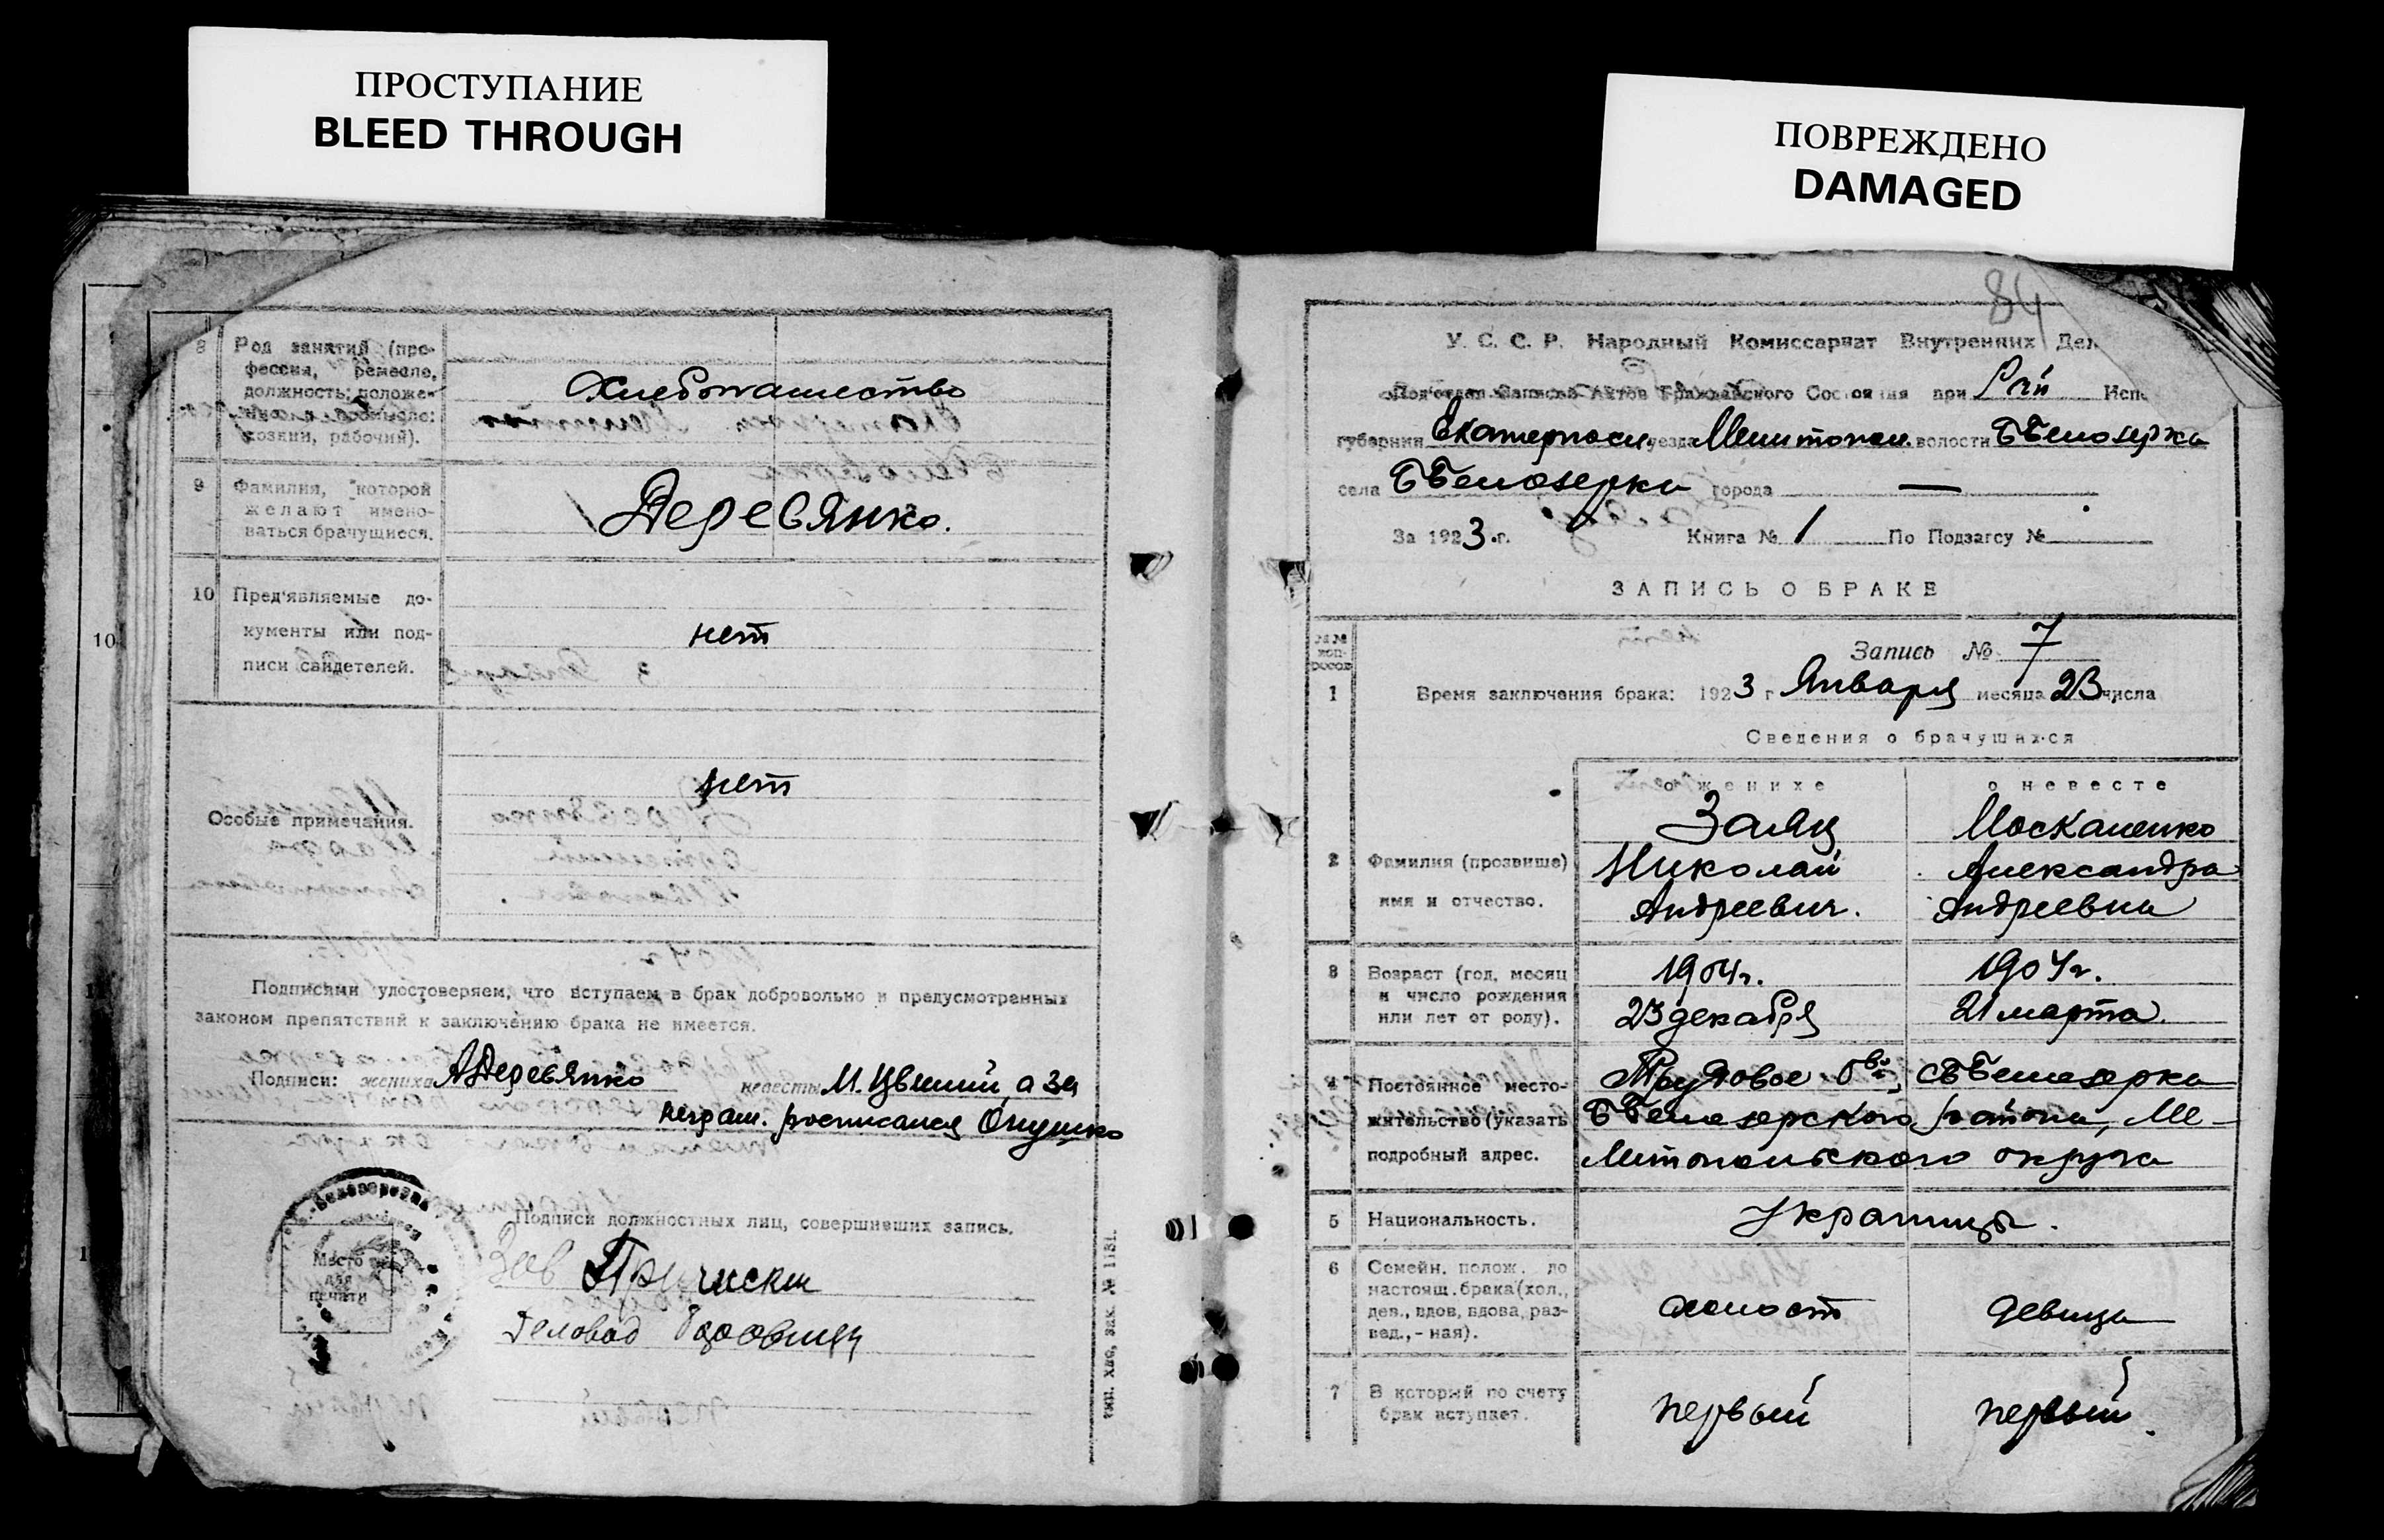 ПРОСТУПАНИЕ
BLEED THROUGH
ПОВРЕЖДЕНО
DAMAGED
8 Род занятий (про-
фессия, ремесло,
должность; положе-
хозяин, рабочий).
Хлебопашество
9 Фамилия, которой
желают имено-
ваться брачущиеся.
Деревянко.
10 Пред'являемые до-
кументы или под-
писи свидетелей.
нет
10
Особые примечания.
нет
Подписями удостоверяем, что вступаем в брак добровольно и предусмотренных
законом препятствий к заключению брака не имеется.
Подписи: жениха АДеревянко невесты М. Цвиний, а за
неграм. росписался Онушко
Подписи должностных лиц, совершивших запись.
Зав
Деловод
Место
для
печати
тип. Хво, зак. № 1131.
84
У. С. С. Р. Народный Комиссариат Внутренних Дел
Под'отдел Записей Актов Гражданского Состояния при Рай Исп
губернии Екатериносл. уезда Мелитопол. волости ББелозерка
села ББелозерка города —
За 1923 г. Книга № 1 По Подзагсу №
ЗАПИСЬ О БРАКЕ
Запись № 7
№№ воп-
росов
1 Время заключения брака: 1923 г Января месяца 23 числа
Сведения о брачущихся
о женихе о невесте
2 Фамилия (прозвище)
имя и отчество.
Заяц Москаленко
Николай Александра
Андреевич. Андреевна
3 Возраст (год, месяц
и число рождения
или лет от роду).
1904г. 1904г.
23 декабря 21 марта.
4 Постоянное место-
жительство (указать
подробный адрес.
Трудовое о-ва, сББелозерка
ББелозерского района, Ме-
литопольского округа
5 Национальность.
Украинцы.
6 Семейн. полож. до
настоящ. брака (хол.,
дев., вдов, вдова, раз-
вед.,-ная).
холост девица
7 В который по счету
брак вступает.
первый первый.